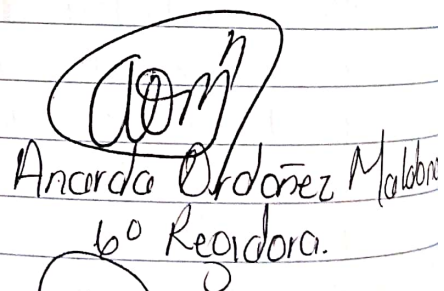 Anarda Ordoñez Maldona
6º Regidora.